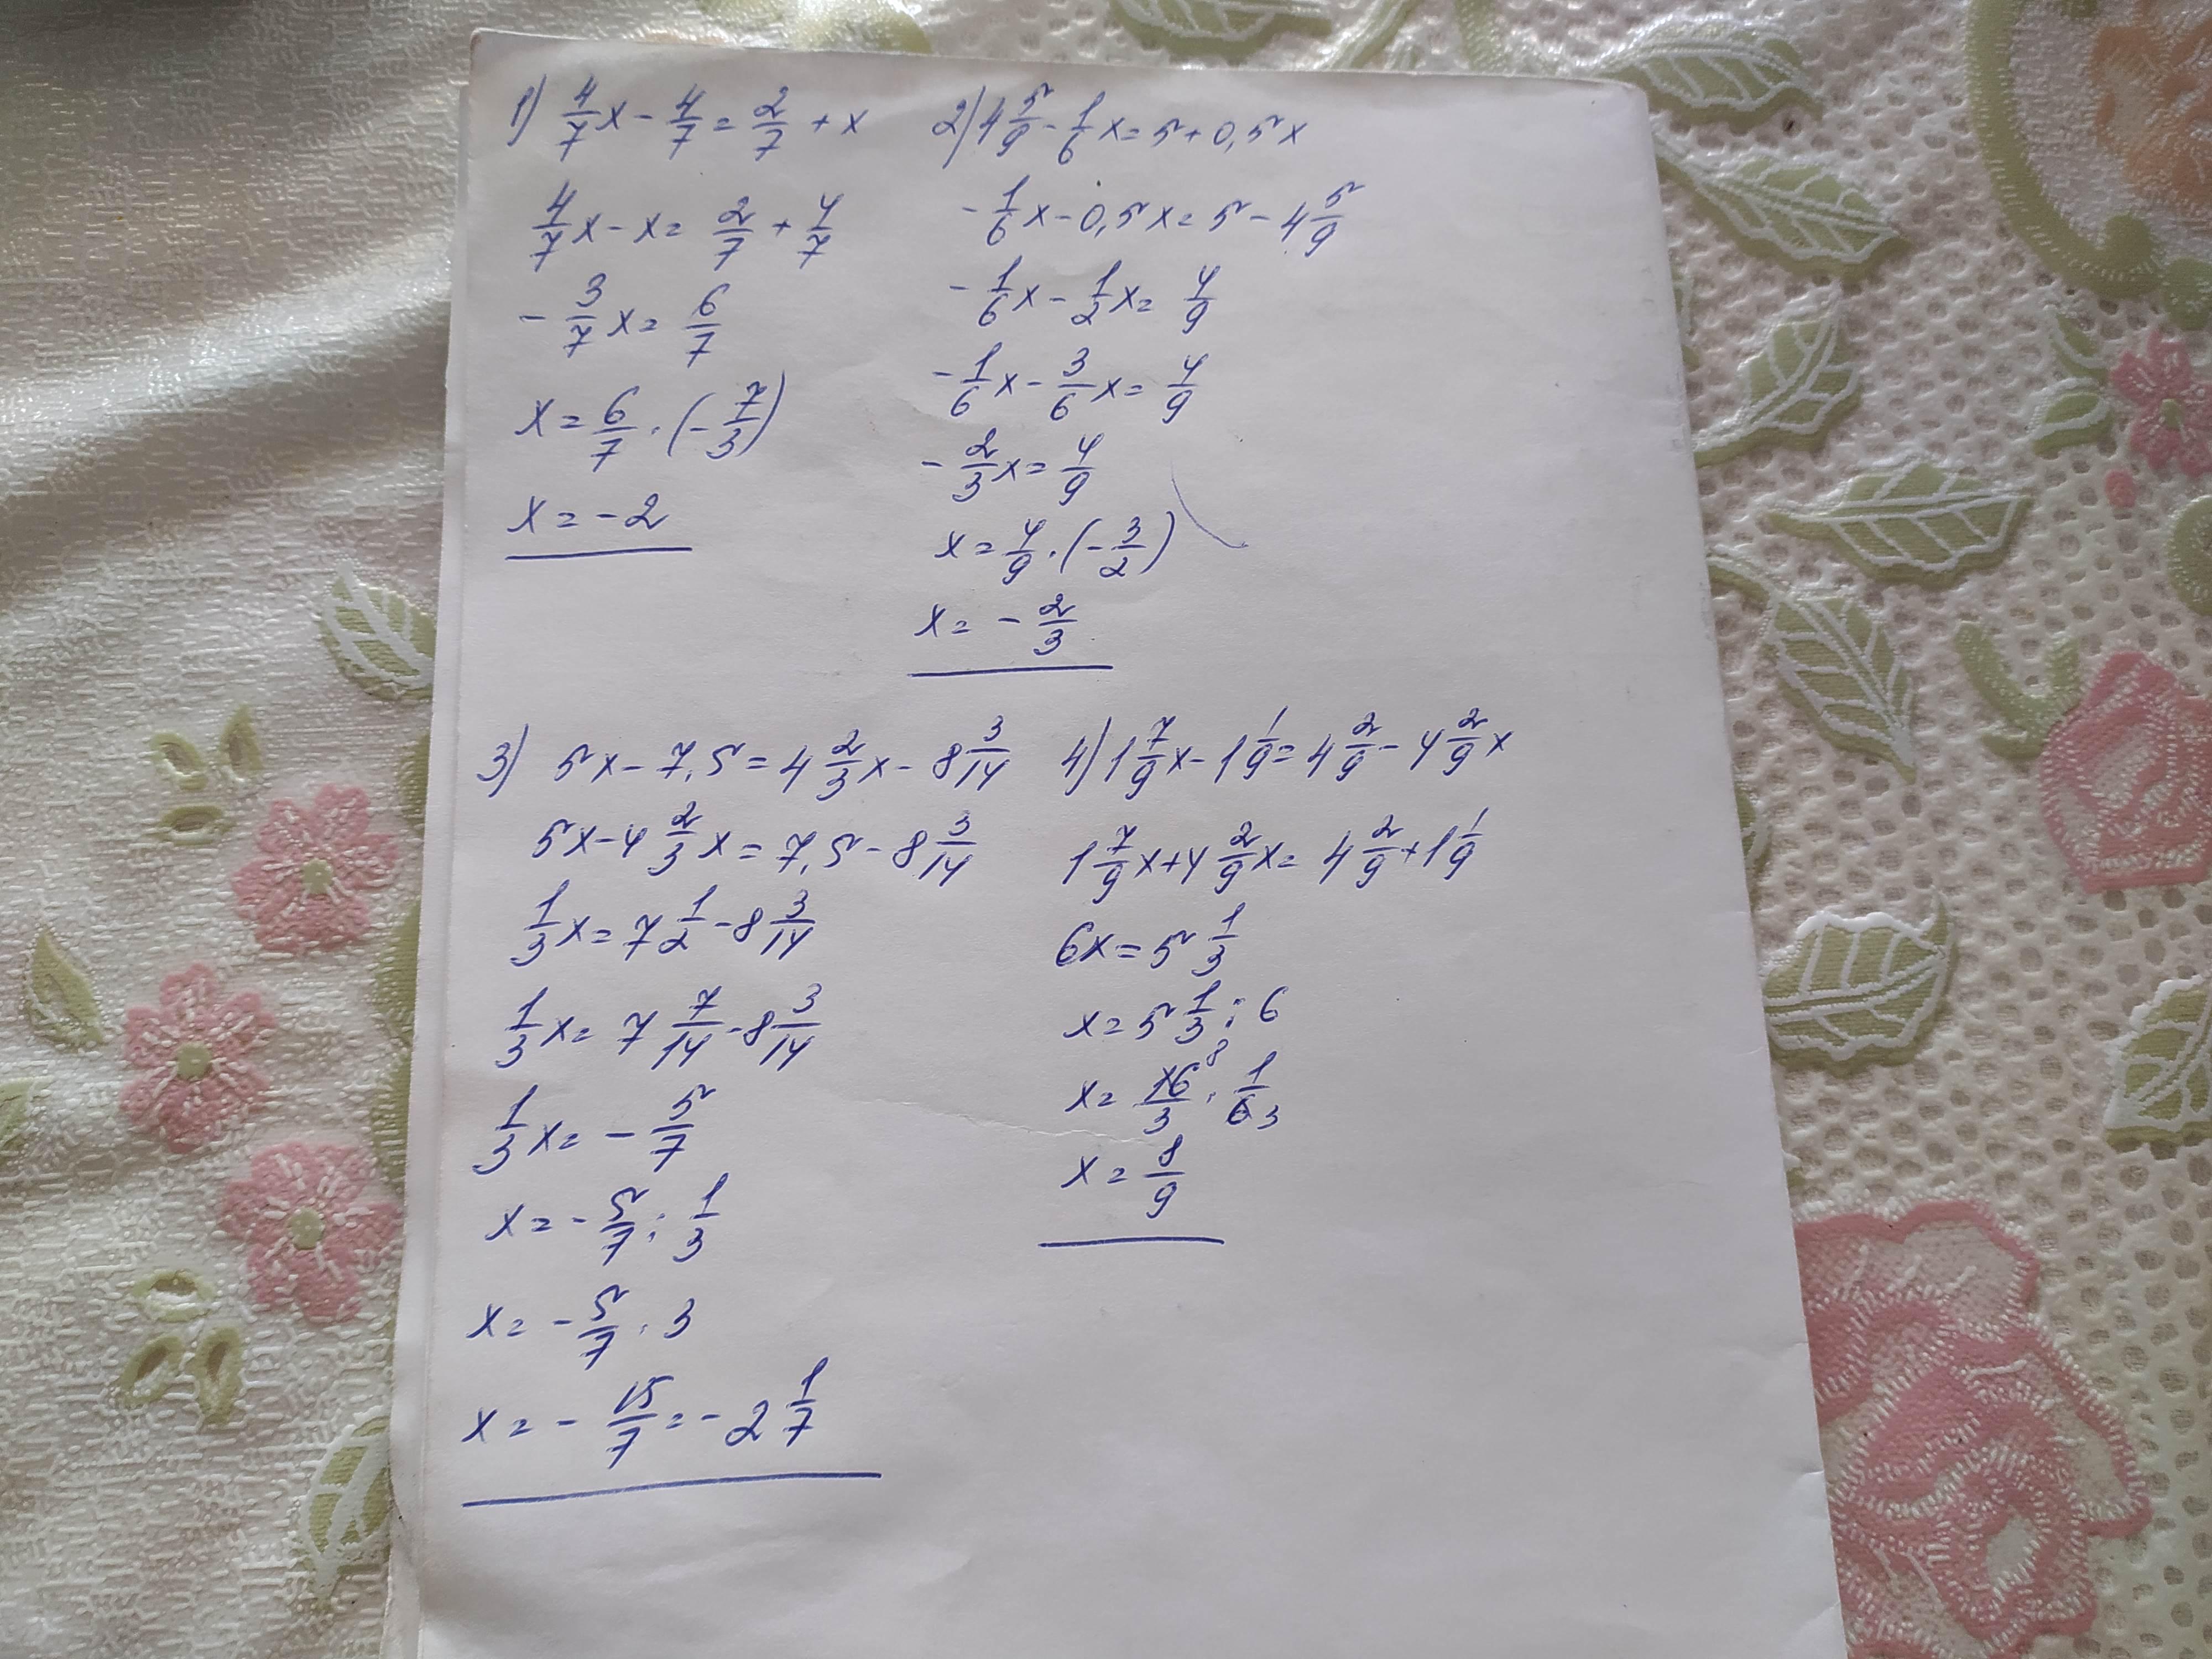 1) 4/7 x - 4/7 = 2/7 + x
4/7 x - x = 2/7 + 4/7
- 3/7 x = 6/7
x = 6/7 · (- 7/3)
x = -2
2) 4 5/9 - 1/6 x = 5 + 0,5x
- 1/6 x - 0,5x = 5 - 4 5/9
- 1/6 x - 1/2 x = 4/9
- 1/6 x - 3/6 x = 4/9
- 2/3 x = 4/9
x = 4/9 · (- 3/2)
x = - 2/3
3) 5x - 7,5 = 4 2/3 x - 8 3/14
5x - 4 2/3 x = 7,5 - 8 3/14
1/3 x = 7 1/2 - 8 3/14
1/3 x = 7 7/14 - 8 3/14
1/3 x = - 5/7
x = - 5/7 : 1/3
x = - 5/7 · 3
x = - 15/7 = - 2 1/7
4) 1 7/9 x - 1 1/9 = 4 2/9 - 4 2/9 x
1 7/9 x + 4 2/9 x = 4 2/9 + 1 1/9
6x = 5 1/3
x = 5 1/3 : 6
x = 16 8/3 · 1/6 3
x = 8/9